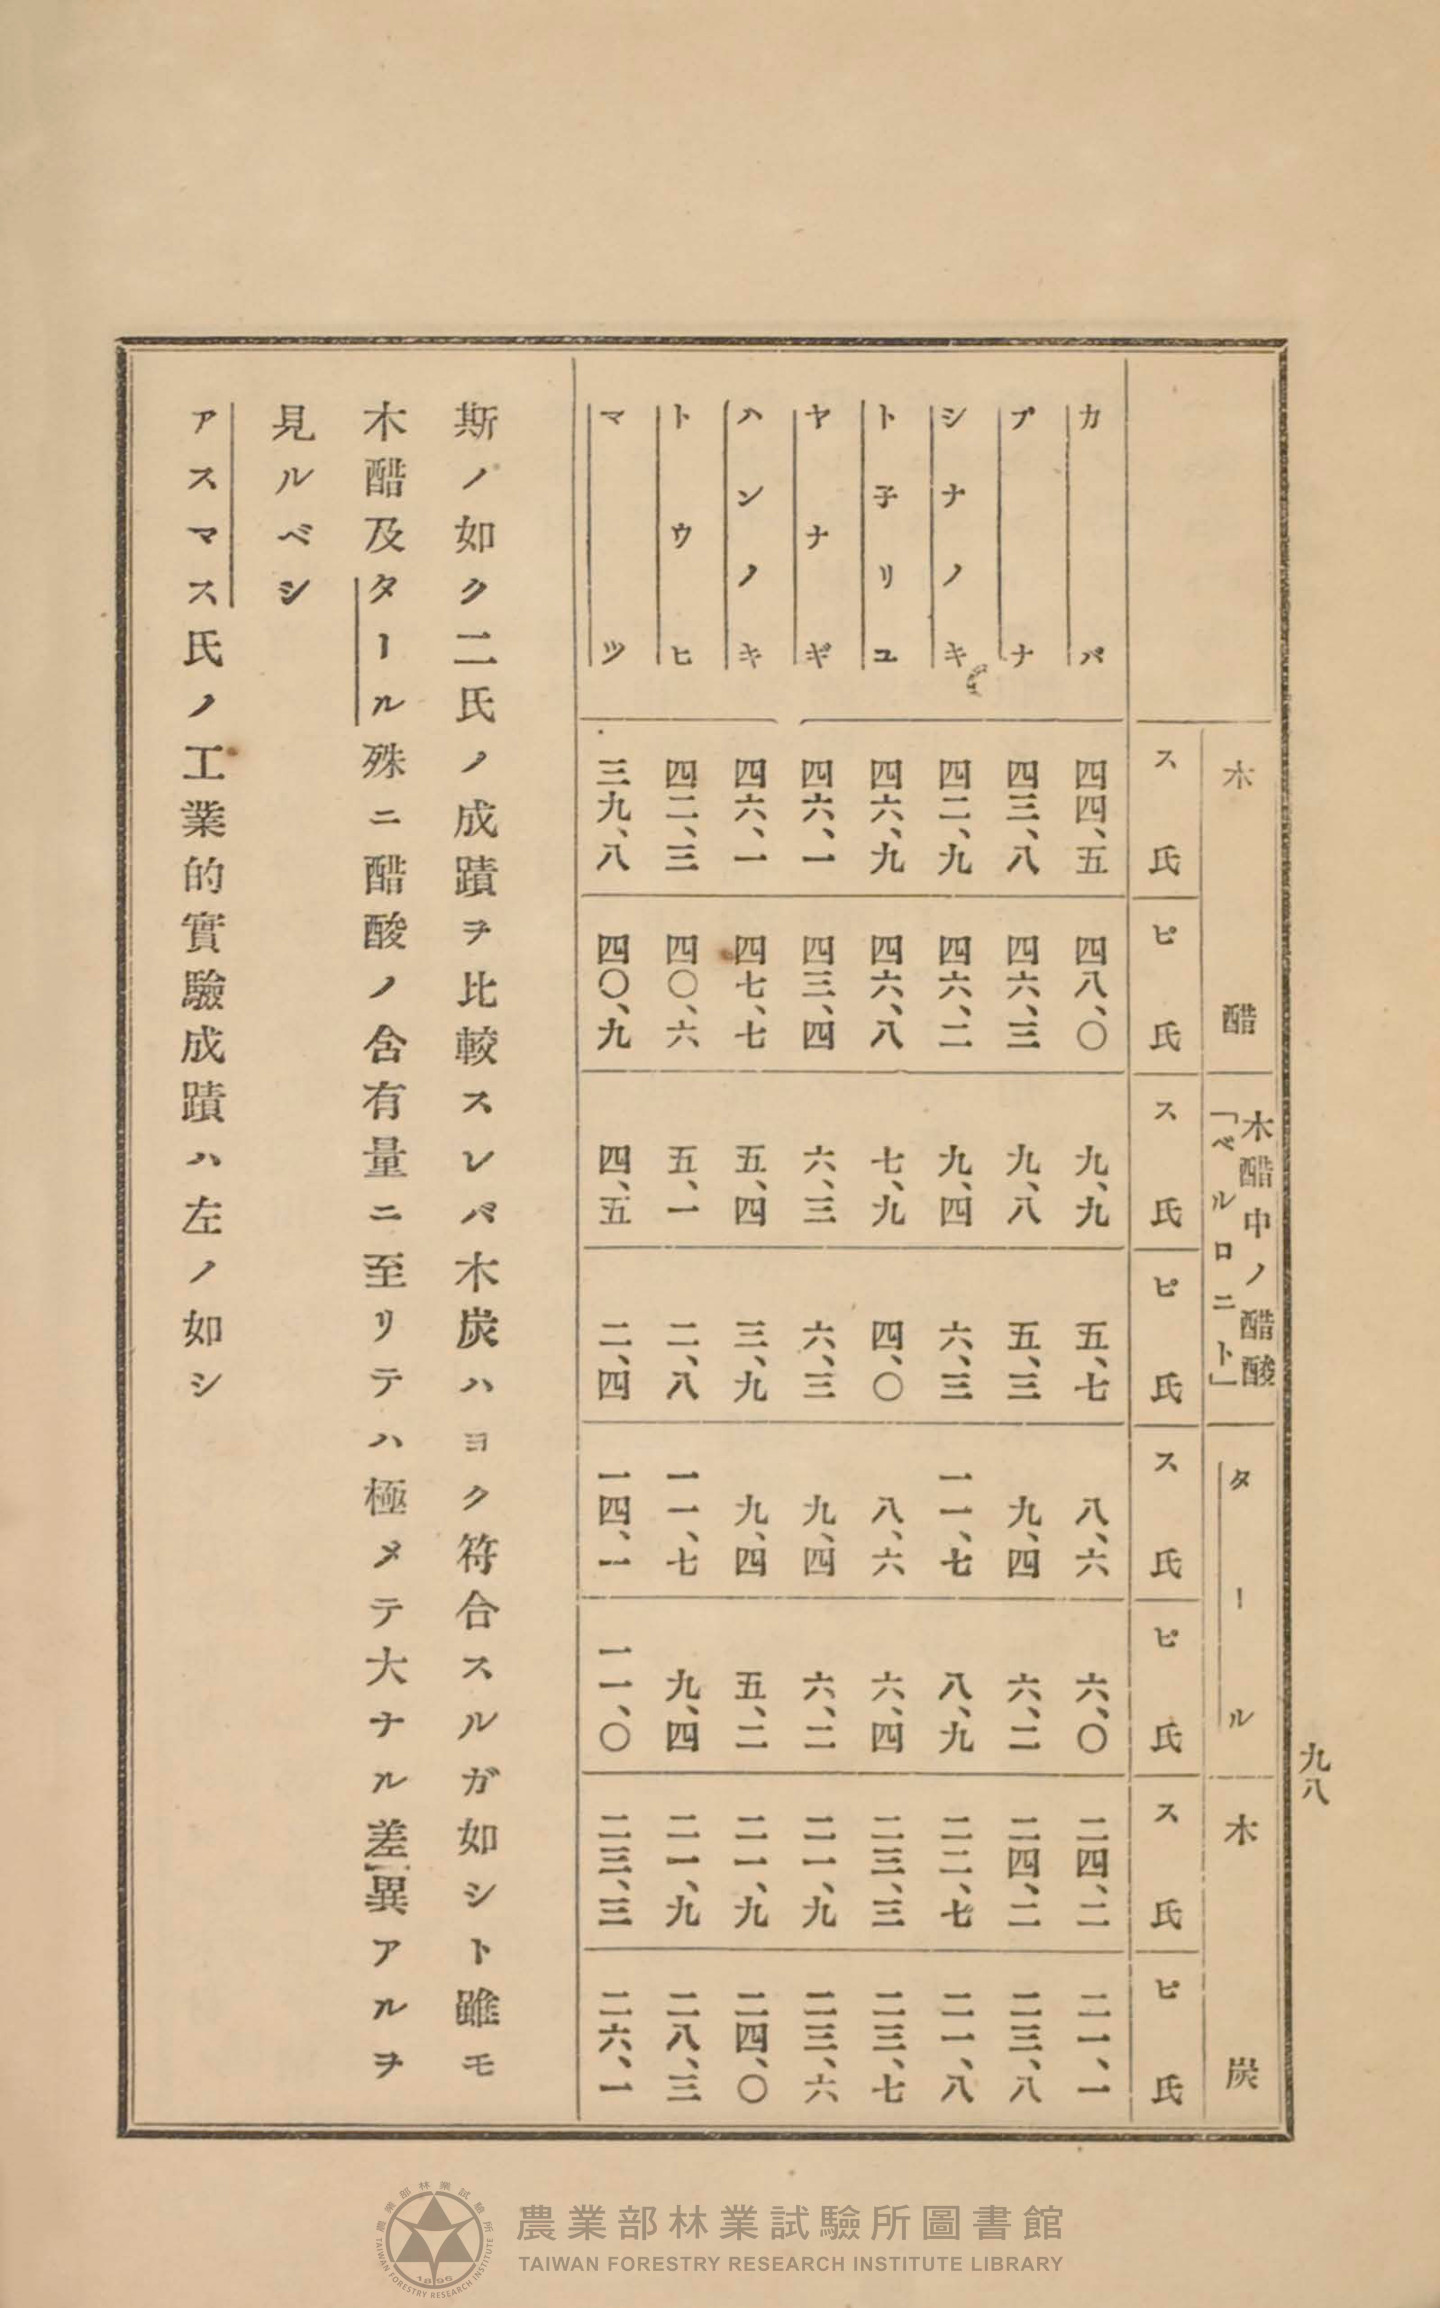 九八
木醋
木醋中ノ醋酸
「ベルロニト」
タール
木炭
ス氏 ピ氏 ス氏 ピ氏 ス氏 ピ氏 ス氏 ピ氏
カバ 四四、五 四八、〇 九、九 五、七 八、六 六、〇 二四、二 二一、一
ブナ 四三、八 四六、三 九、八 五、三 九、四 六、二 二四、二 二三、八
シナノキ 四二、九 四六、二 九、四 六、三 一一、七 八、九 二二、七 二一、八
ト子リユ 四六、九 四六、八 七、九 四、〇 八、六 六、四 二三、三 二三、七
ヤナギ 四六、一 四三、四 六、三 六、三 九、四 六、二 二一、九 二三、六
ハンノキ 四六、一 四七、七 五、四 三、九 九、四 五、二 二一、九 二四、〇
トウヒ 四二、三 四〇、六 五、一 二、八 一一、七 九、四 二一、九 二八、三
マツ 三九、八 四〇、九 四、五 二、四 一四、一 一一、〇 二三、三 二六、一
斯ノ如ク二氏ノ成蹟ヲ比較スレバ木炭ハヨク符合スルガ如シト雖モ
木醋及タール殊ニ醋酸ノ含有量ニ至リテハ極メテ大ナル差異アルヲ
見ルベシ
アスマス氏ノ工業的實驗成蹟ハ左ノ如シ
農業部林業試驗所圖書館
TAIWAN FORESTRY RESEARCH INSTITUTE LIBRARY
農業部林業試驗所
TAIWAN FORESTRY RESEARCH INSTITUTE
1896